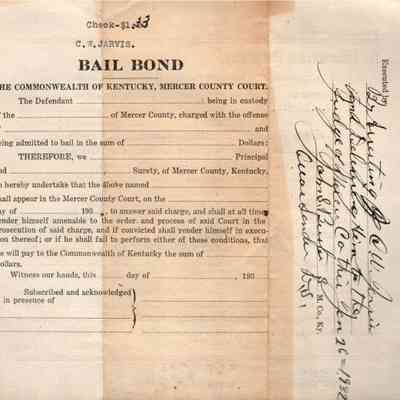 Check-$1.33
C.W.JARVIS.
BAIL BOND
THE COMMONWEALTH OF KENTUCKY, MERCER COUNTY COURT.
The Defendant being in custody
of the of Mercer County, charged with the offense
and
being admitted to bail in the sum of Dollars:
THEREFORE, we Principal
nd Surety, of Mercer County, Kentucky,
o hereby undertake that the above named
hall appear in the Mercer County Court, on the
ay of 193 , to answer said charge, and shall at all times
ender himself amenable to the order and process of said Court in the
rosecution of said charge, and if convicted shall render himself in execu-
on thereof; or if he shall fail to perform either of these conditions, that
e will pay to the Commonwealth of Kentucky the sum of
ollars.
Witness our hands, this day of , 193
Subscribed and acknowledged
in presence of
Executed by
By Arresting C.W. Jarvis
and delivered him to the
Judge of Mercer Co this Jan 26-1932
S. M. Co. Ky.
D.S.